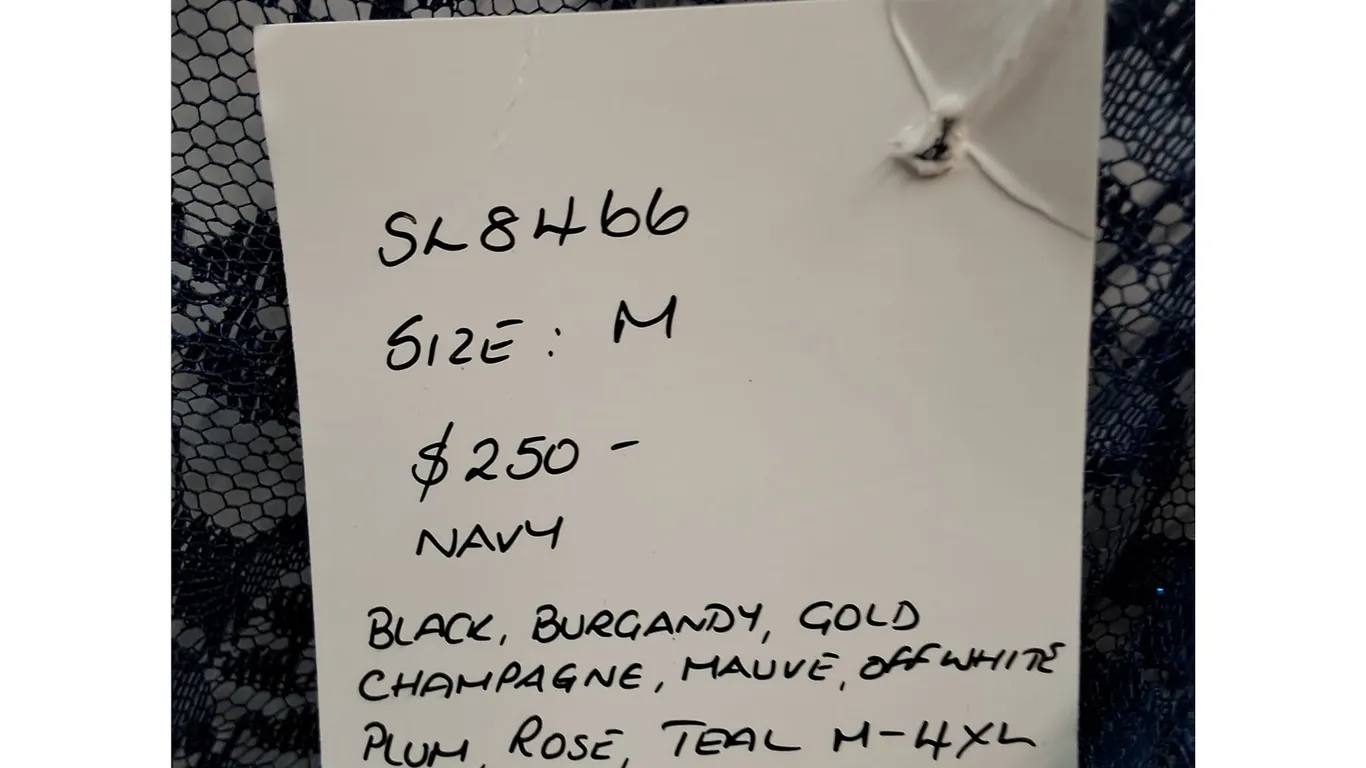 SL8466
SIZE: M
$250-
NAVY
BLACK, BURGANDY, GOLD
CHAMPAGNE, MAUVE, OFFWHITE
PLUM, ROSE, TEAL M-4XL